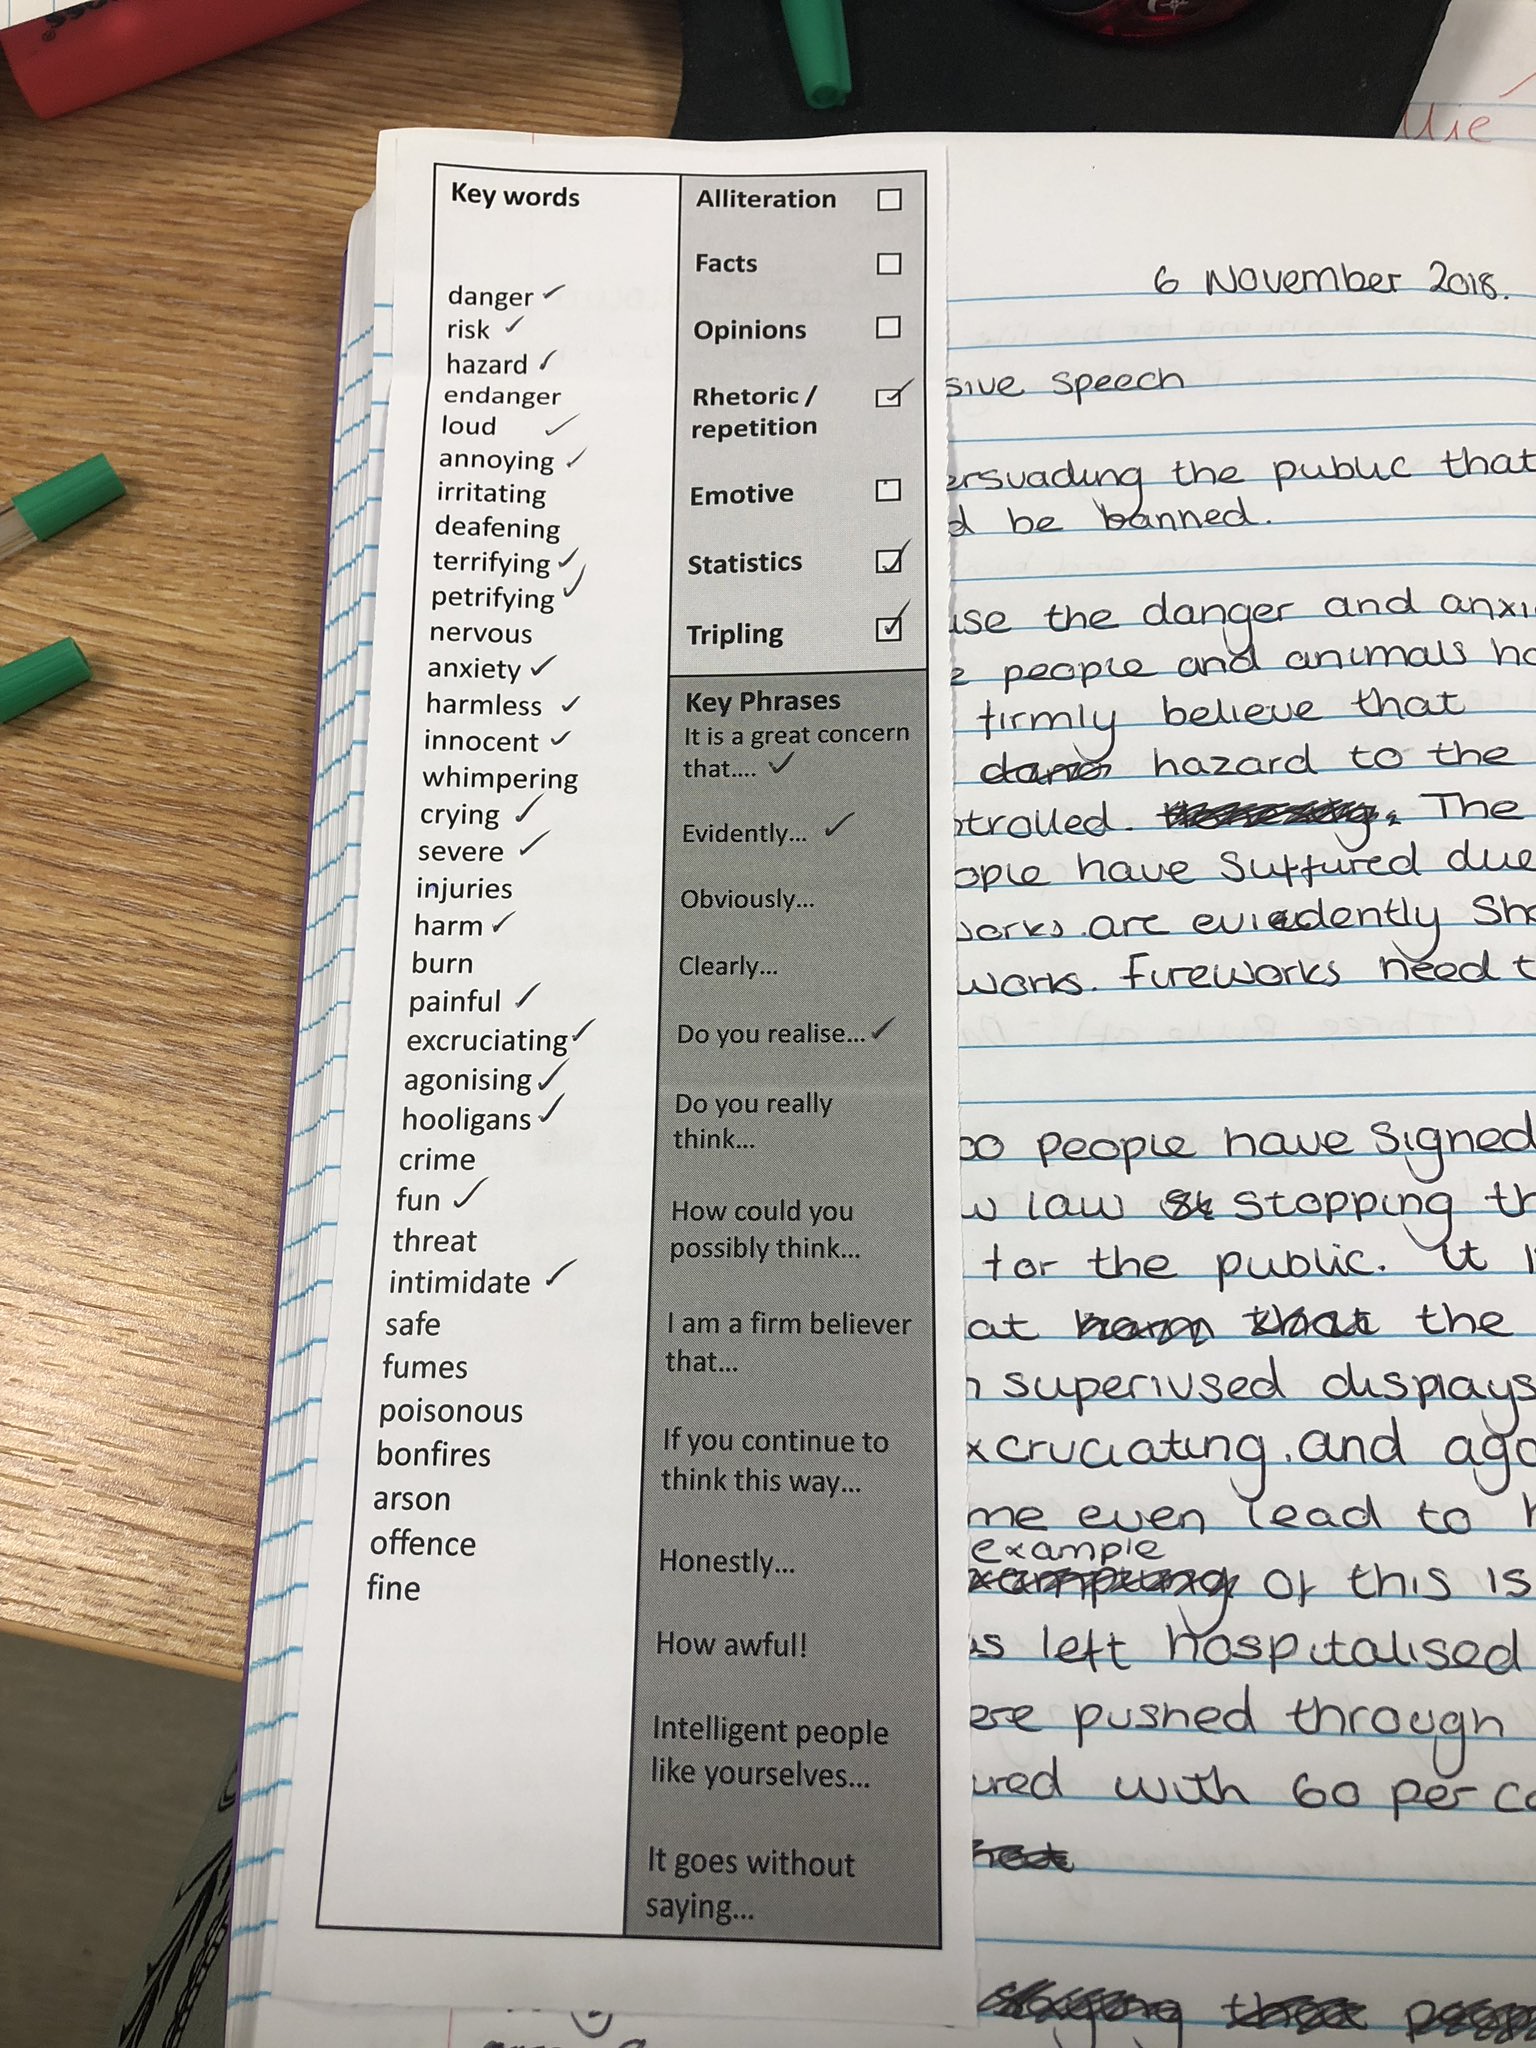 Key words
danger ✓
risk ✓
hazard ✓
endanger
loud ✓
annoying ✓
irritating
deafening
terrifying ✓
petrifying ✓
nervous
anxiety ✓
harmless ✓
innocent ✓
whimpering
crying ✓
severe ✓
injuries
harm ✓
burn
painful ✓
excruciating ✓
agonising ✓
hooligans ✓
crime
fun ✓
threat
intimidate ✓
safe
fumes
poisonous
bonfires
arson
offence
fine
Alliteration ☐
Facts ☐
Opinions ☐
Rhetoric / ☑
repetition
Emotive ☐
Statistics ☑
Tripling ☑
Key Phrases
It is a great concern
that.... ✓
Evidently... ✓
Obviously...
Clearly...
Do you realise... ✓
Do you really
think...
How could you
possibly think...
I am a firm believer
that...
If you continue to
think this way...
Honestly...
How awful!
Intelligent people
like yourselves...
It goes without
saying...
6 November 2018.
sive speech
ersuading the public that
d be banned.
use the danger and anxi
e people and animals ha
firmly believe that
hazard to the
ntrolled. The
ople have suffured due
works are eviedently sho
works. Fireworks need t
00 people have signed
w law stopping th
for the public. It i
at the
n superivsed displays
xcruciating and ago
me even lead to h
example
of this is
as left hospitalised
ere pushed through
ured with 60 per ce